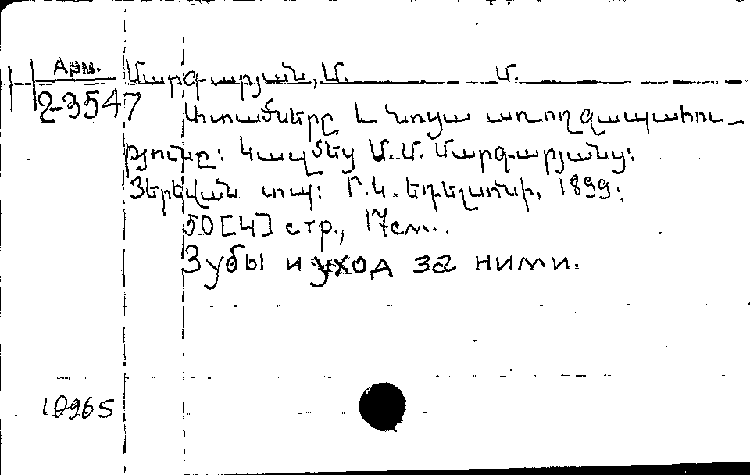 Арм. Մարգարյան, Մ. Մ.
2-3547
Ատամները և նոցա առողջապահու-
թյունը: Կազմեց Մ. Մ. Մարգարյանց:
Յերեվան տպ: Մ. Կ. Եդելսոնի, 1899:
50 [4] стр., 17см.
Зубы и уход за ними.
18965